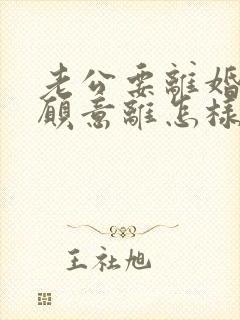 老公要離婚
願意離怎樣
王社旭